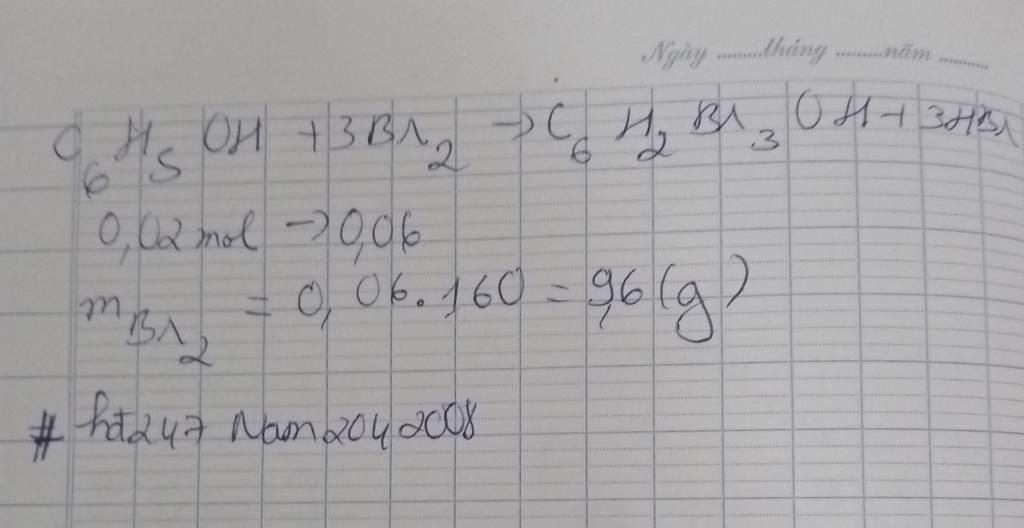 Ngày .........tháng .........năm .........
C6H5OH + 3Br2 → C6H2Br3OH + 3HBr
0,02 mol → 0,06
mBr2 = 0,06.160 = 9,6 (g)
# ht247 Nam2042008